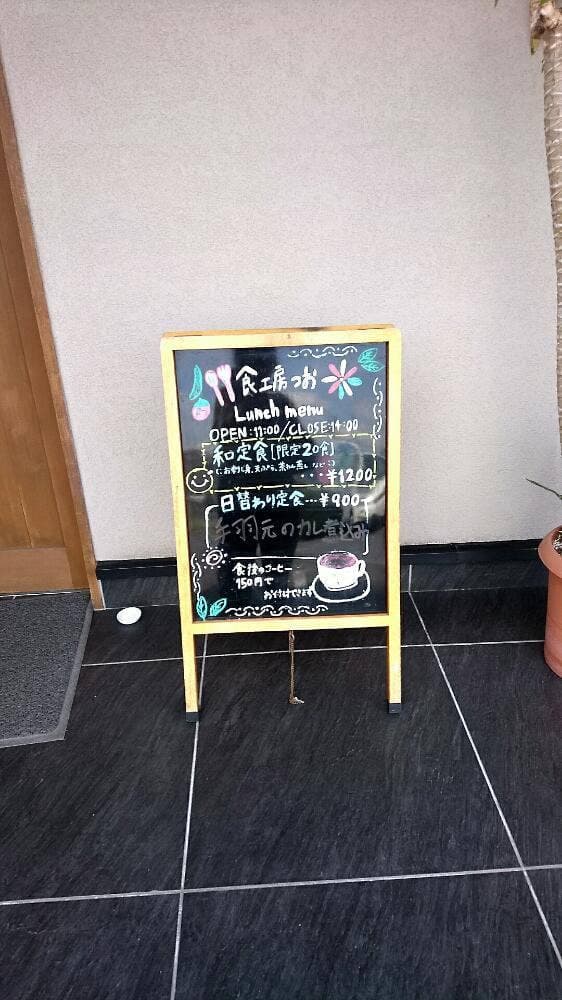 食工房つお
Lunch menu
OPEN:11:00/CLOSE:14:00
和定食[限定20食]
(お刺身、天ぷら、茶わん蒸し など)
・・・¥1200
日替わり定食・・・¥900
手羽元のカレー煮込み
食後のコーヒー
150円で
お付けできます